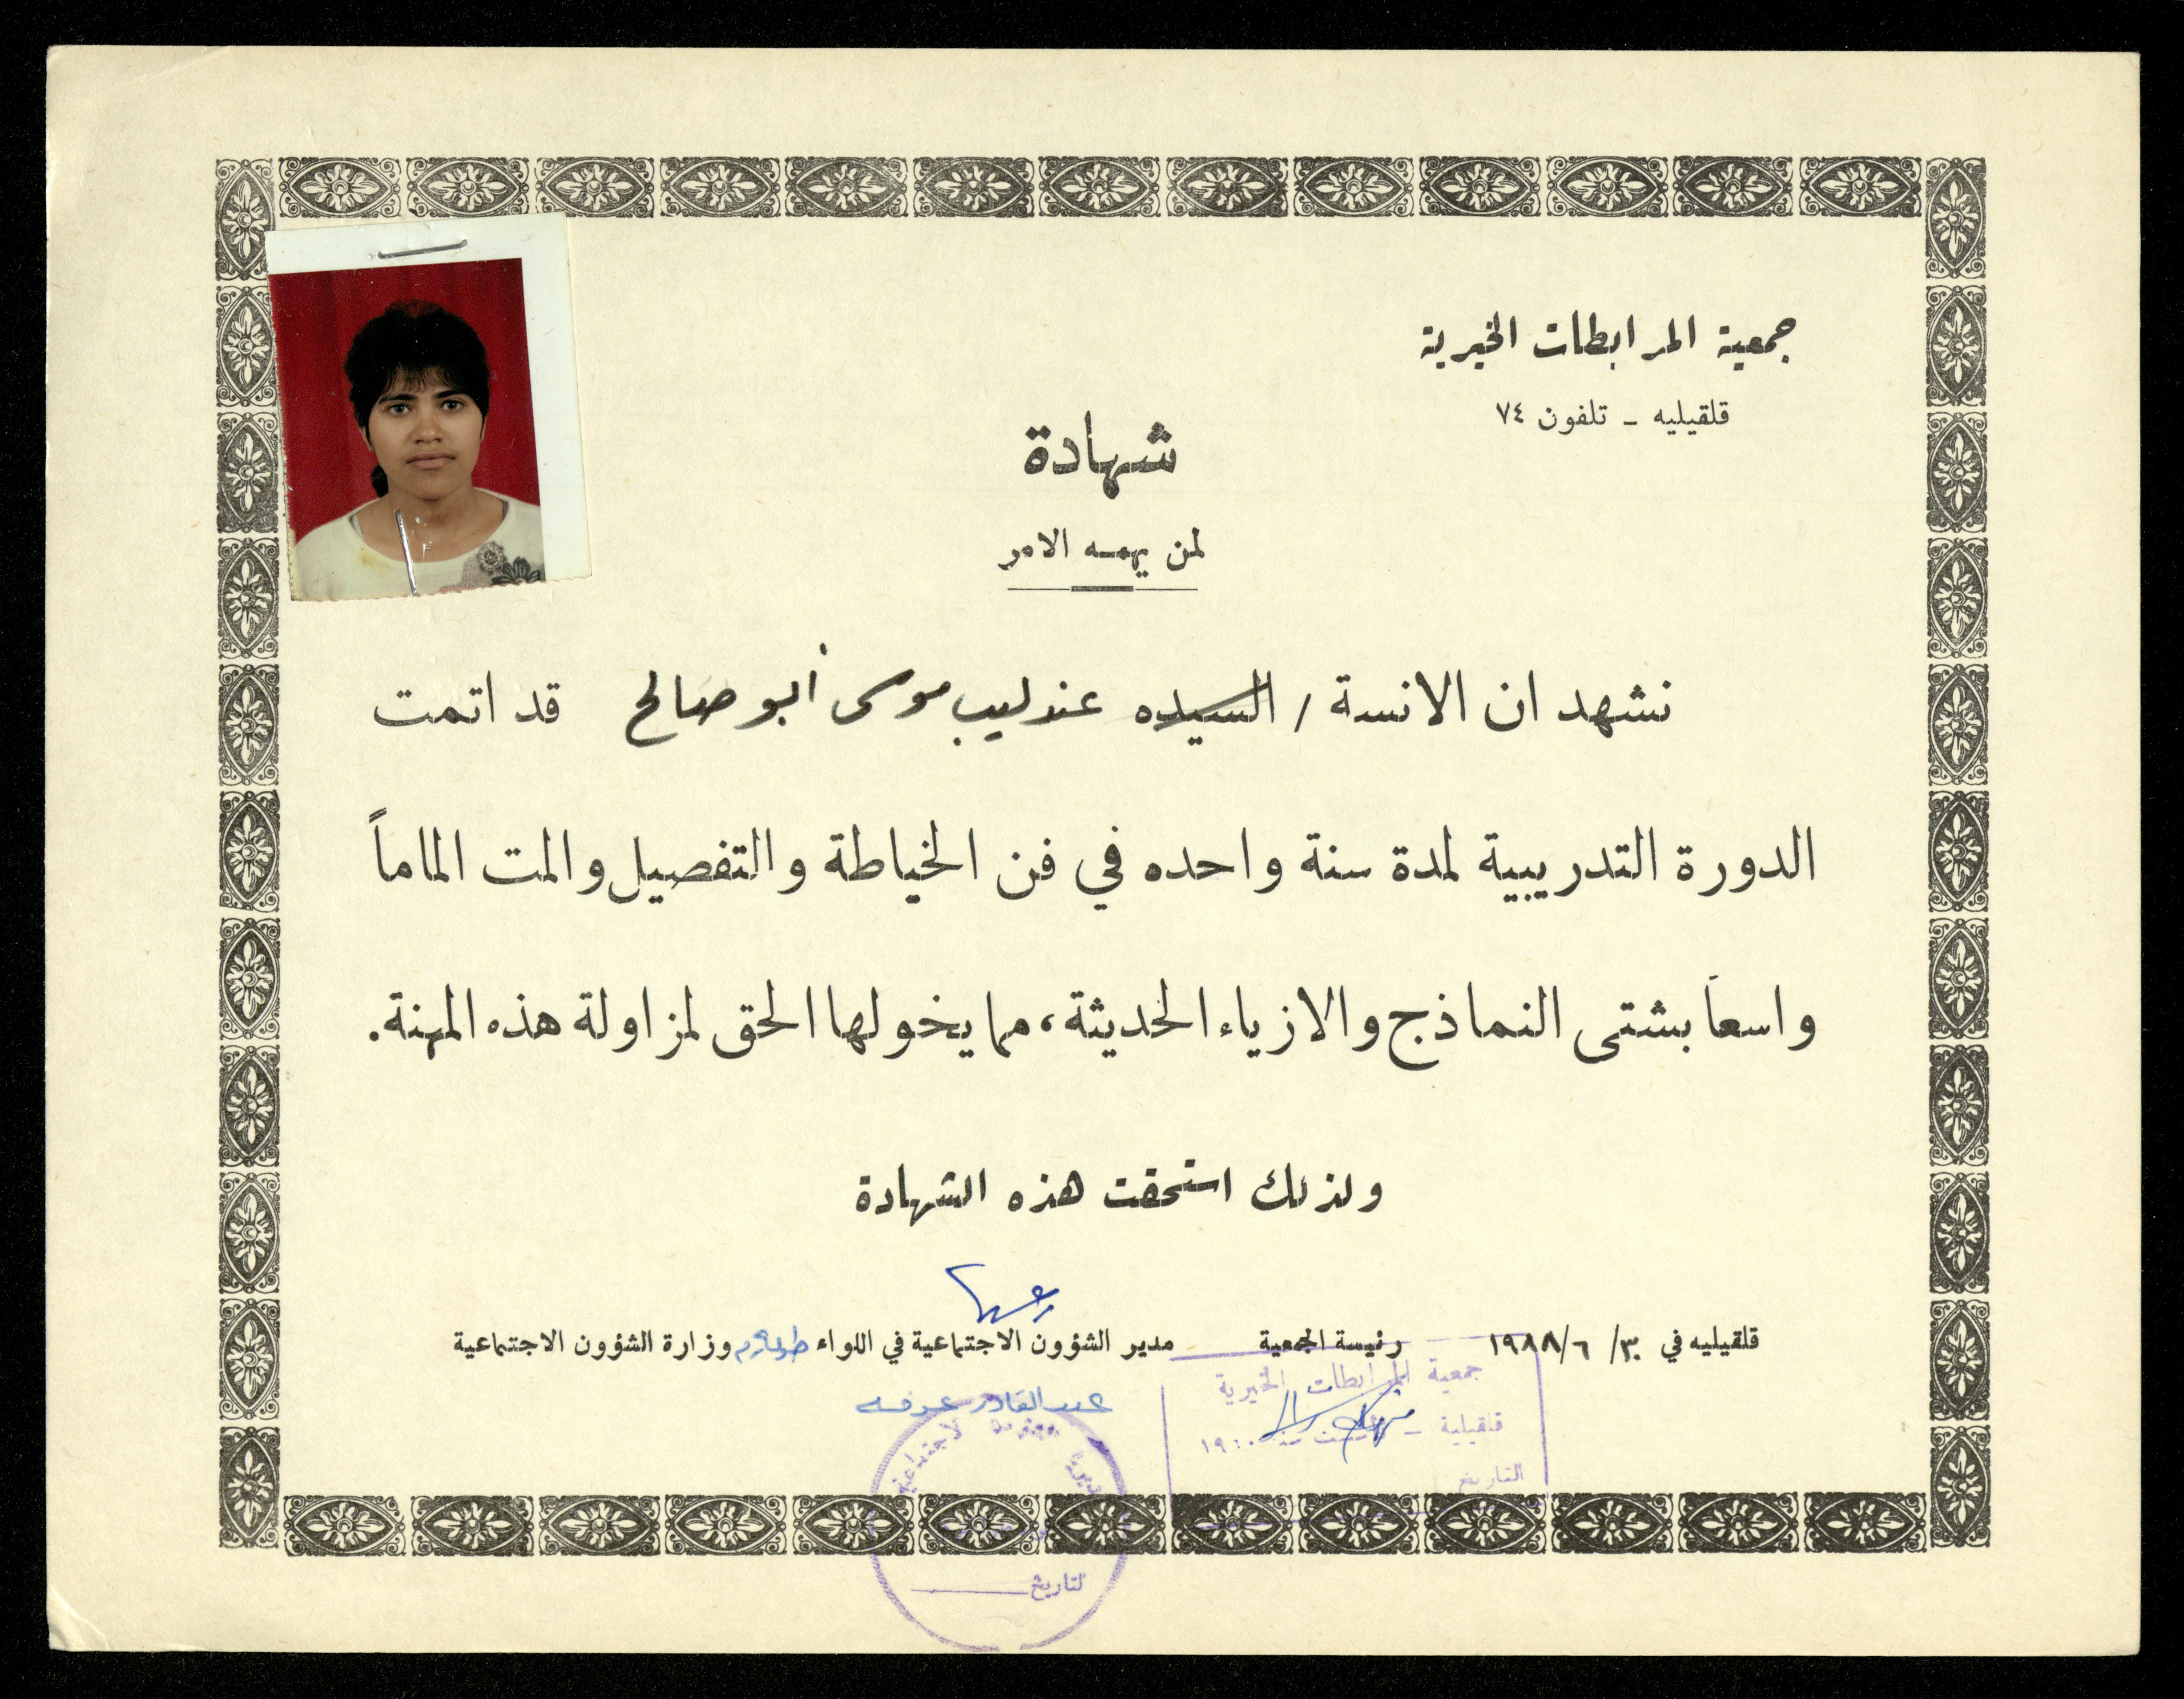 جمعية المرابطات الخيرية
قلقيليه - تلفون ٧٤
شهادة
لمن يهمه الامر
نشهد ان الانسة / السيده عندليب موسى أبو صالح قد اتمت
الدورة التدريبية لمدة سنة واحده في فن الخياطة والتفصيل والمت الماماً
واسعاً بشتى النماذج والازياء الحديثة، مما يخولها الحق لمزاولة هذه المهنة.
ولذلك استحقت هذه الشهادة
قلقيليه في ٣٠/ ٦/ ١٩٨٨ رئيسة الجمعية مدير الشؤون الاجتماعية في اللواء طولكرم وزارة الشؤون الاجتماعية
جمعية المرابطات الخيرية
عبد القادر عرفه
قلقيلية -
التاريخ
الاجتماعية
التاريخ